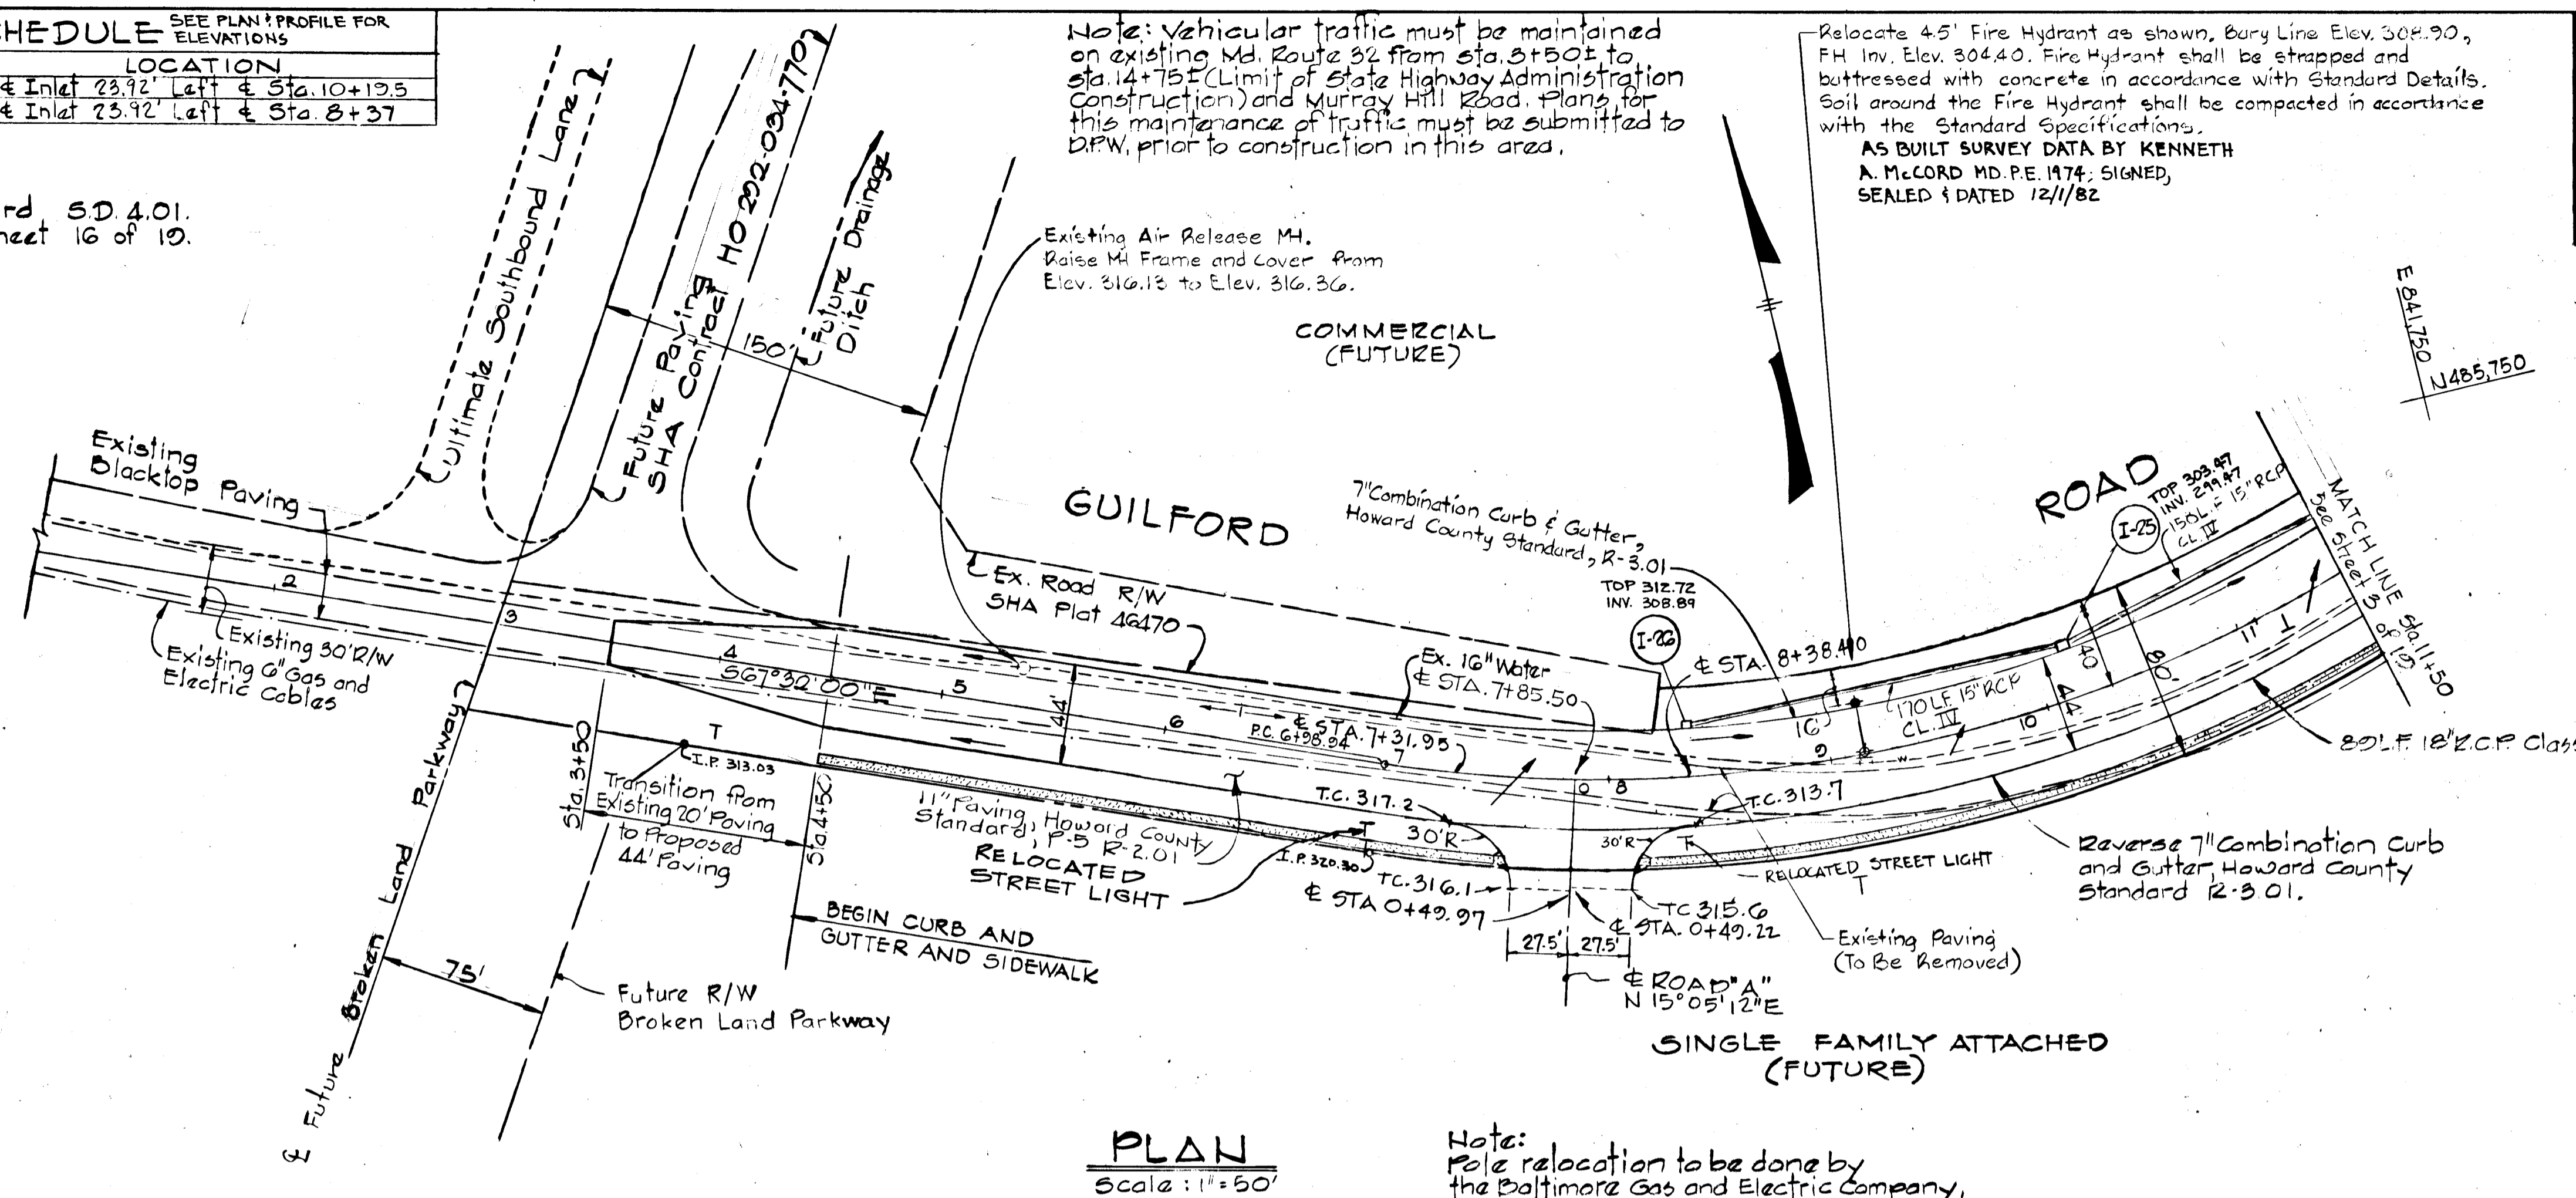 HEDULE SEE PLAN & PROFILE FOR
ELEVATIONS
LOCATION
℄ Inlet 23.92' Left ℄ Sta. 10+19.5
℄ Inlet 23.92' Left ℄ Sta. 8+37
rd S.D. 4.01.
heet 16 of 19.
Note: Vehicular traffic must be maintained
on existing Md. Route 32 from sta. 3+50± to
sta. 14+75± (Limit of State Highway Administration
Construction) and Murray Hill Road. Plans for
this maintenance of traffic must be submitted to
D.P.W. prior to construction in this area.
Relocate 4.5' Fire Hydrant as shown, Bury Line Elev. 308.90,
FH Inv. Elev. 304.40. Fire Hydrant shall be strapped and
buttressed with concrete in accordance with Standard Details.
Soil around the Fire Hydrant shall be compacted in accordance
with the Standard Specifications.
AS BUILT SURVEY DATA BY KENNETH
A. McCORD MD. P.E. 1974; SIGNED,
SEALED & DATED 12/1/82
Ultimate Southbound Lane
Future Paving
SHA Contract HO 292-034-770
Future Drainage
Ditch
150'
Existing Air Release MH.
Raise MH Frame and Cover from
Elev. 316.13 to Elev. 316.36.
COMMERCIAL
(FUTURE)
E 841,750
N 485,750
Existing
Blacktop Paving
GUILFORD
ROAD
7" Combination Curb & Gutter,
Howard County Standard, R-3.01
TOP 312.72
INV. 308.89
I-26
TOP 303.47
INV. 299.47
I-25
150 L.F. 15" RCP
CL. IV
MATCH LINE Sta. 11+50
See Sheet 3 of 19
Ex. Road R/W
SHA Plat 46470
Existing 30' R/W
Existing 6" Gas and
Electric Cables
2
3
4
S67°32'00"E
5
6
7
8
9
10
11
44'
Ex. 16" Water
℄ STA. 7+85.50
℄ STA. 8+38.40
℄ STA. 7+31.95
P.C. 6+98.94
16'
170 LF 15" RCP
CL. IV
W
40'
80'
44'
T
89 L.F. 18" R.C.P. Clas
Sta. 3+50
T
I.P. 313.03
Transition from
Existing 20' Paving
to Proposed
44' Paving
Sta. 4+50
11" Paving, Howard County
Standard, P-5 R-2.01
RELOCATED
STREET LIGHT
T
I.P. 320.30
T.C. 317.2
30'R
T.C. 313.7
30'R
T
RELOCATED STREET LIGHT
T
TC. 316.1
℄ STA 0+49.97
TC 315.6
℄ STA. 0+49.22
27.5'
27.5'
℄ ROAD "A"
N 15°05'12" E
Existing Paving
(To Be Removed)
Reverse 7" Combination Curb
and Gutter, Howard County
Standard R-3.01.
BEGIN CURB AND
GUTTER AND SIDEWALK
75'
Future R/W
Broken Land Parkway
℄ Future Broken Land Parkway
SINGLE FAMILY ATTACHED
(FUTURE)
PLAN
Scale: 1"=50'
Note:
Pole relocation to be done by
the Baltimore Gas and Electric Company,